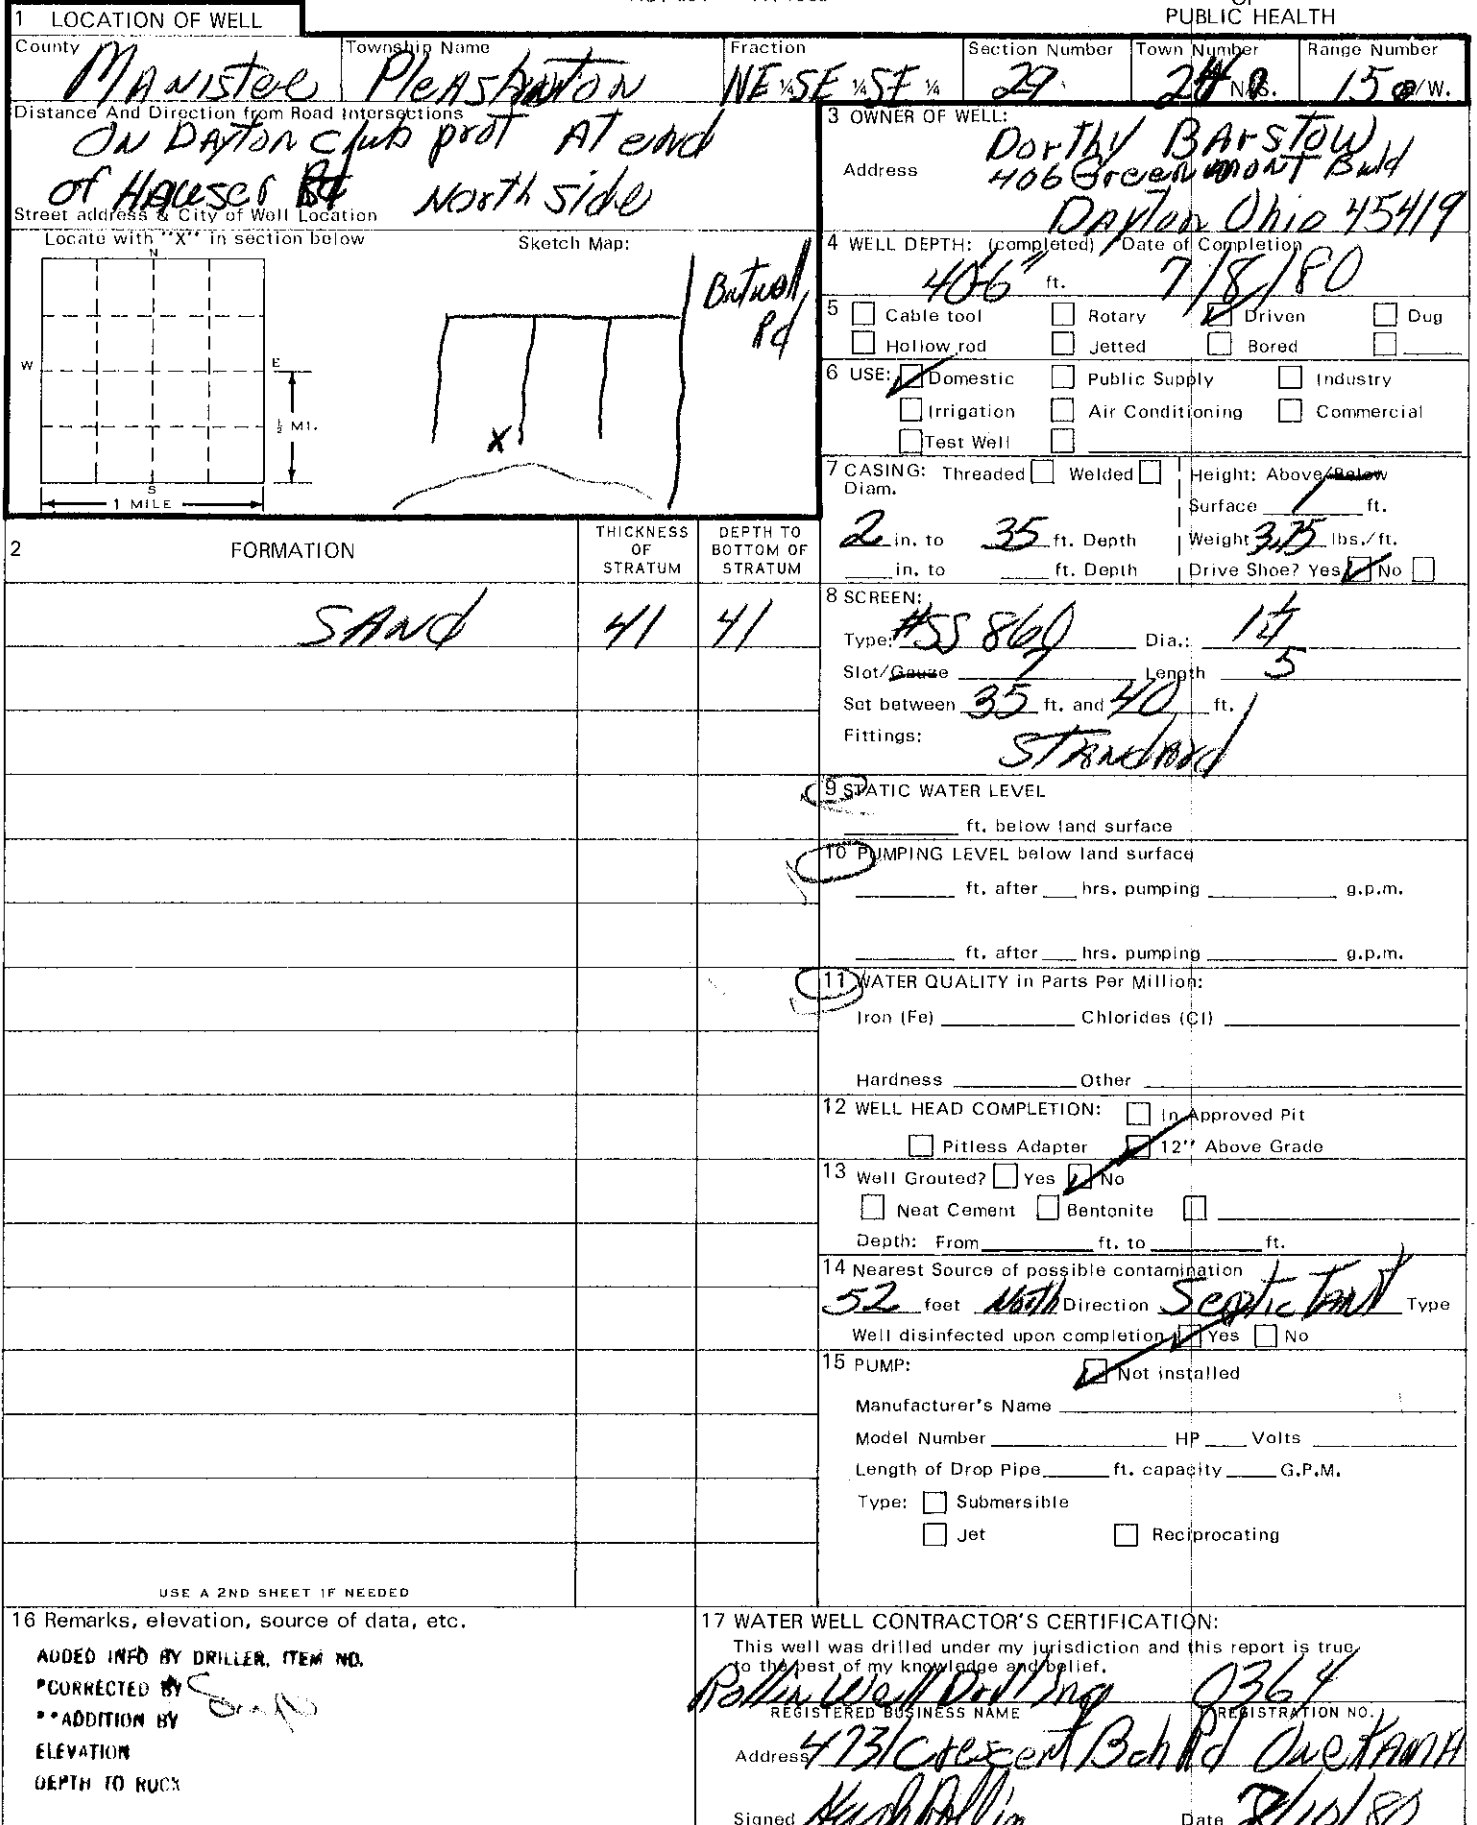 OF
PUBLIC HEALTH
1 LOCATION OF WELL
County Township Name Fraction Section Number Town Number Range Number
Manistee Pleasanton NE ¼ SE ¼ SE ¼ 29 24 N/S. 15 /W.
Distance And Direction from Road Intersections
On Dayton Club prot At end
of Hauser Rd North side
Street address & City of Well Location
Locate with "X" in section below
Sketch Map:
N
W
E
S
½ MI.
1 MILE
X
Rd
3 OWNER OF WELL:
Dorthy Barstow
Address 406 Greenmont Buld
Dayton Ohio 45419
4 WELL DEPTH: (completed) Date of Completion
40'6" ft. 7/8/80
5 Cable tool Rotary Driven Dug
Hollow rod Jetted Bored
6 USE: Domestic Public Supply Industry
Irrigation Air Conditioning Commercial
Test Well
7 CASING: Threaded Welded Height: Above/Below
Diam. Surface 1 ft.
2 in. to 35 ft. Depth Weight 3.75 lbs./ft.
in. to ft. Depth Drive Shoe? Yes No
8 SCREEN:
Type: #SS 860 Dia.: 1¼
Slot/Gauze 7 Length 5
Set between 35 ft. and 40 ft.
Fittings: Standard
2 FORMATION THICKNESS OF STRATUM DEPTH TO BOTTOM OF STRATUM
SAnd 41 41
9 STATIC WATER LEVEL
ft. below land surface
10 PUMPING LEVEL below land surface
ft. after hrs. pumping g.p.m.
ft. after hrs. pumping g.p.m.
11 WATER QUALITY in Parts Per Million:
Iron (Fe) Chlorides (Cl)
Hardness Other
12 WELL HEAD COMPLETION: In Approved Pit
Pitless Adapter 12" Above Grade
13 Well Grouted? Yes No
Neat Cement Bentonite
Depth: From ft. to ft.
14 Nearest Source of possible contamination
52 feet North Direction Septic Tank Type
Well disinfected upon completion Yes No
15 PUMP: Not installed
Manufacturer's Name
Model Number HP Volts
Length of Drop Pipe ft. capacity G.P.M.
Type: Submersible
Jet Reciprocating
USE A 2ND SHEET IF NEEDED
16 Remarks, elevation, source of data, etc.
ADDED INFO BY DRILLER, ITEM NO.
*CORRECTED BY
**ADDITION BY
ELEVATION
DEPTH TO ROCK
17 WATER WELL CONTRACTOR'S CERTIFICATION:
This well was drilled under my jurisdiction and this report is true
to the best of my knowledge and belief.
Rollin Well Drilling 0364
REGISTERED BUSINESS NAME REGISTRATION NO.
Address 4731 Crescent Bch Rd Onekama
Signed Hugh Rollin Date 8/10/80